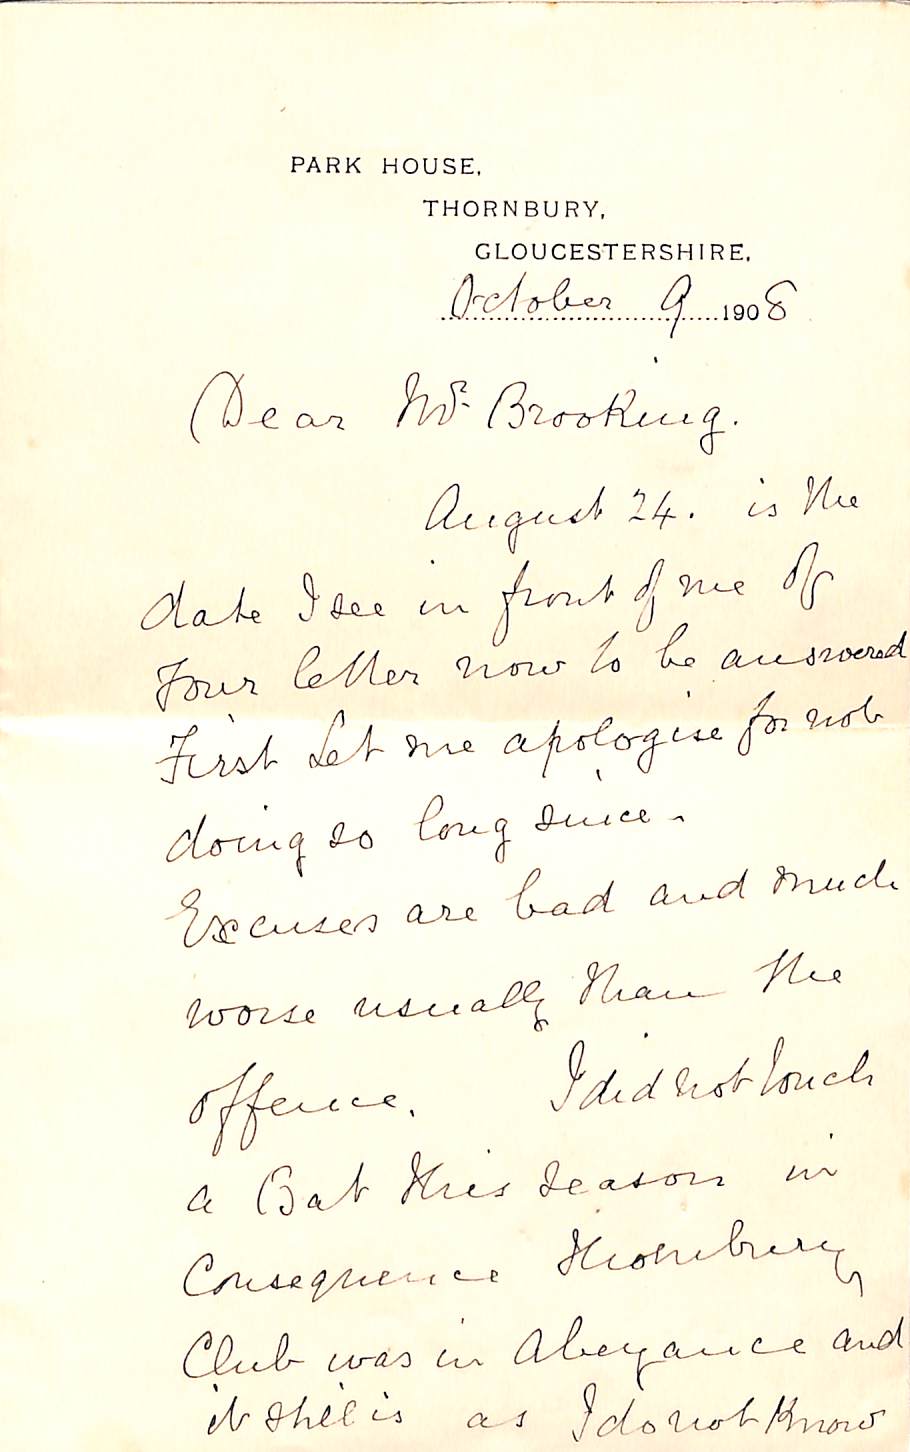 PARK HOUSE,
THORNBURY,
GLOUCESTERSHIRE.
October 9 1908
Dear Mr. Brooking.
August 24. is the
date I see in front of me of
Your letter now to be answered
First Let me apologise for not
doing so long since -
Excuses are bad and much
worse usually than the
offence. I did not touch
a Bat this season in
Consequence Thornbury
Club was in Abeyance and
it still is as I do not Know